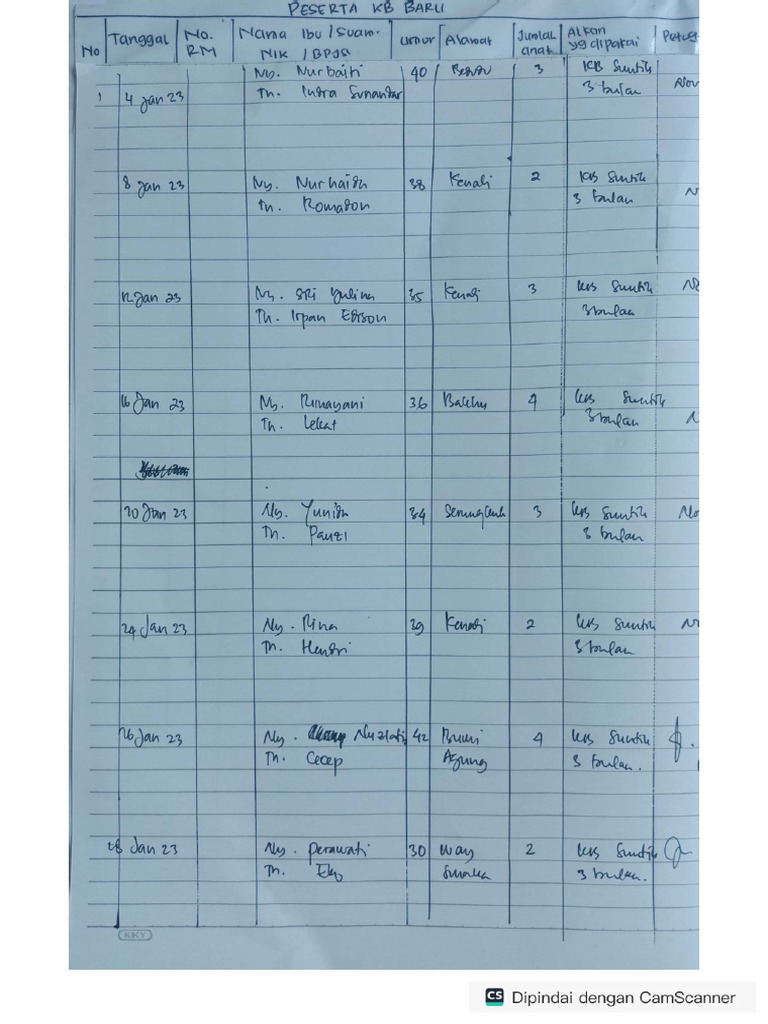 PESERTA KB BARU
No Tanggal No. RM Nama Ibu/Suami NIK / BPJS Umur Alamat Jumlah anak Alkon yg dipakai Petug
1 4 Jan 23 Ny. Nurbaiti 40 3 KB Suntik
Tn. Indra Sunandar 3 bulan Nov
8 Jan 23 Ny. Nurhaida 38 Kenali 2 KB Suntik
Tn. Romadon 3 bulan N
12 Jan 23 Ny. SRI Yulina 35 Kenali 3 KB Suntik No
Tn. Irpan Edison 3 bulan
16 Jan 23 Ny. Rinayani 36 Bakhu 4 KB Suntik
Tn. Lekat 3 bulan N
20 Jan 23 Ny. Yunida 34 3 KB Suntik No
Tn. Pauzi 3 bulan
24 Jan 23 Ny. Rina 29 Kenali 2 KB Suntik N
Tn. Hendri 3 bulan
26 Jan 23 Ny. Nuzlati 42 Bumi 4 KB Suntik
Tn. Cecep Agung 3 bulan.
28 Jan 23 Ny. Perawati 30 Way 2 KB Suntik
Tn. Eko 3 bulan.
KKY
CS Dipindai dengan CamScanner